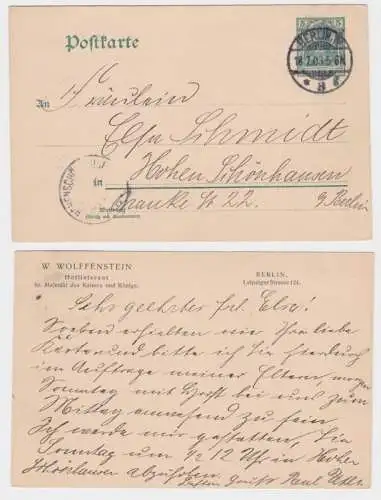 Postkarte
5 5
BERLIN.W.
8
An Fräulein
Elsa Schmidt
in Hohen Schönhausen
Wohnung
(Straße und Hausnummer)
Franke St. 22. b/Berlin
W. WOLFFENSTEIN
Hoflieferant
Sr. Majestät des Kaisers und Königs.
BERLIN,
Leipziger Strasse 124.
Sehr geehrtes frl. Elsa!
Soeben erhielten wir Ihre liebe
Karte und bitte ich Sie hierdurch
im Auftrage meiner Eltern, morgen
Sonntag mit Horst bei uns zum
Mittag anwesend zu sein
Ich werde mir gestatten, Sie
Sonntag um ½ 12 Uhr in Hohen
Schönhausen abzuholen.
Grüße Paul